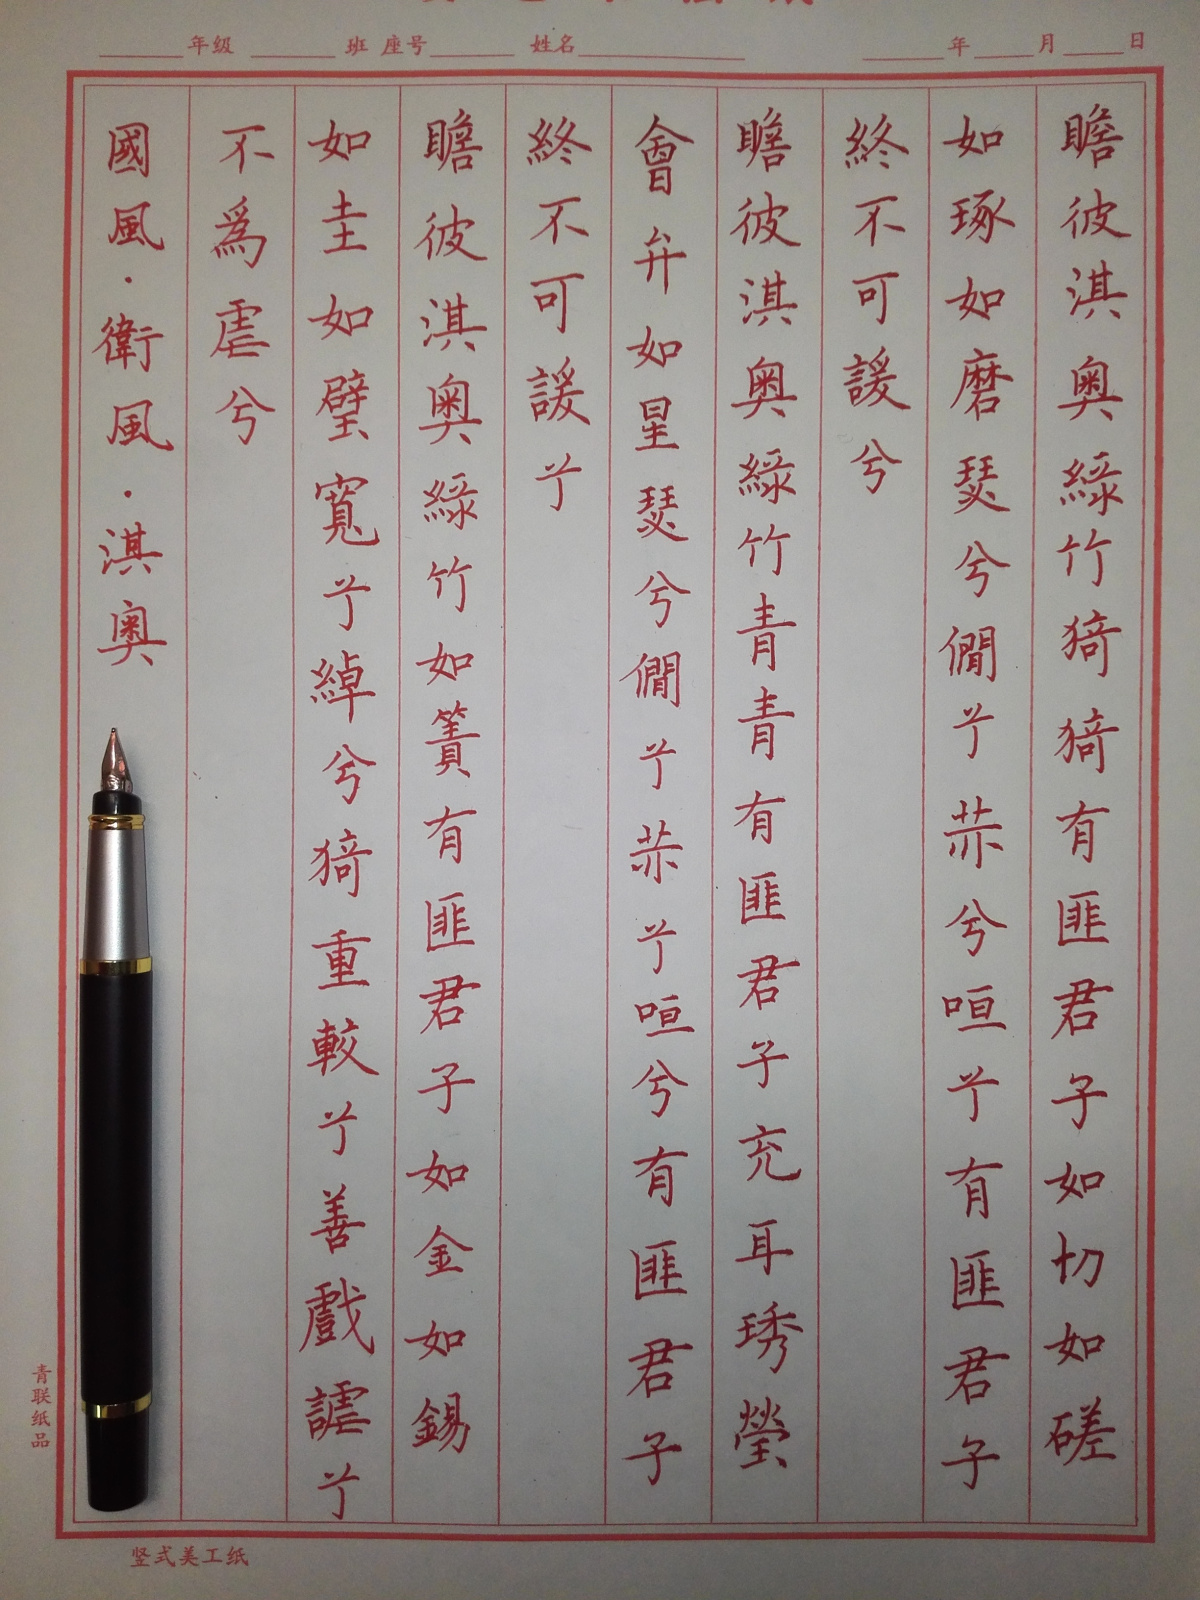 年级 班 座号 姓名 年 月 日
瞻彼淇奧綠竹猗猗有匪君子如切如磋
如琢如磨瑟兮僩兮恭兮咺兮有匪君子
終不可諼兮
瞻彼淇奧綠竹青青有匪君子充耳琇瑩
會弁如星瑟兮僩兮恭兮咺兮有匪君子
終不可諼兮
瞻彼淇奧綠竹如簀有匪君子如金如錫
如圭如璧寬兮綽兮猗重較兮善戲謔兮
不爲虐兮
國風·衛風·淇奧
青联纸品
竖式美工纸